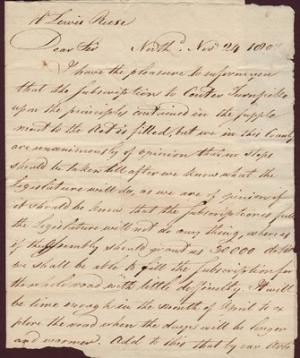 Lewis Reese
Dear Sir North'd. Nov 24 180
I have the pleasure to inform you
that the subscription to Center Turnpike
upon the principles contained in the supple
ment to the Act is filled, but we in this County
are unanimously of opinion that no steps
should be taken till after we know what the
Legislature will do, as we are of opinion if
it should be known that the subscription is full
the Legislature will not do any thing, whereas
if the Assembly should grant us 30.000 dollars
we shall be able to fill the subscription for
the whole road with little difficulty. It will
be time enough in the month of April to ex
plore the road when the days will be longer
and warmer. Add to this that by our